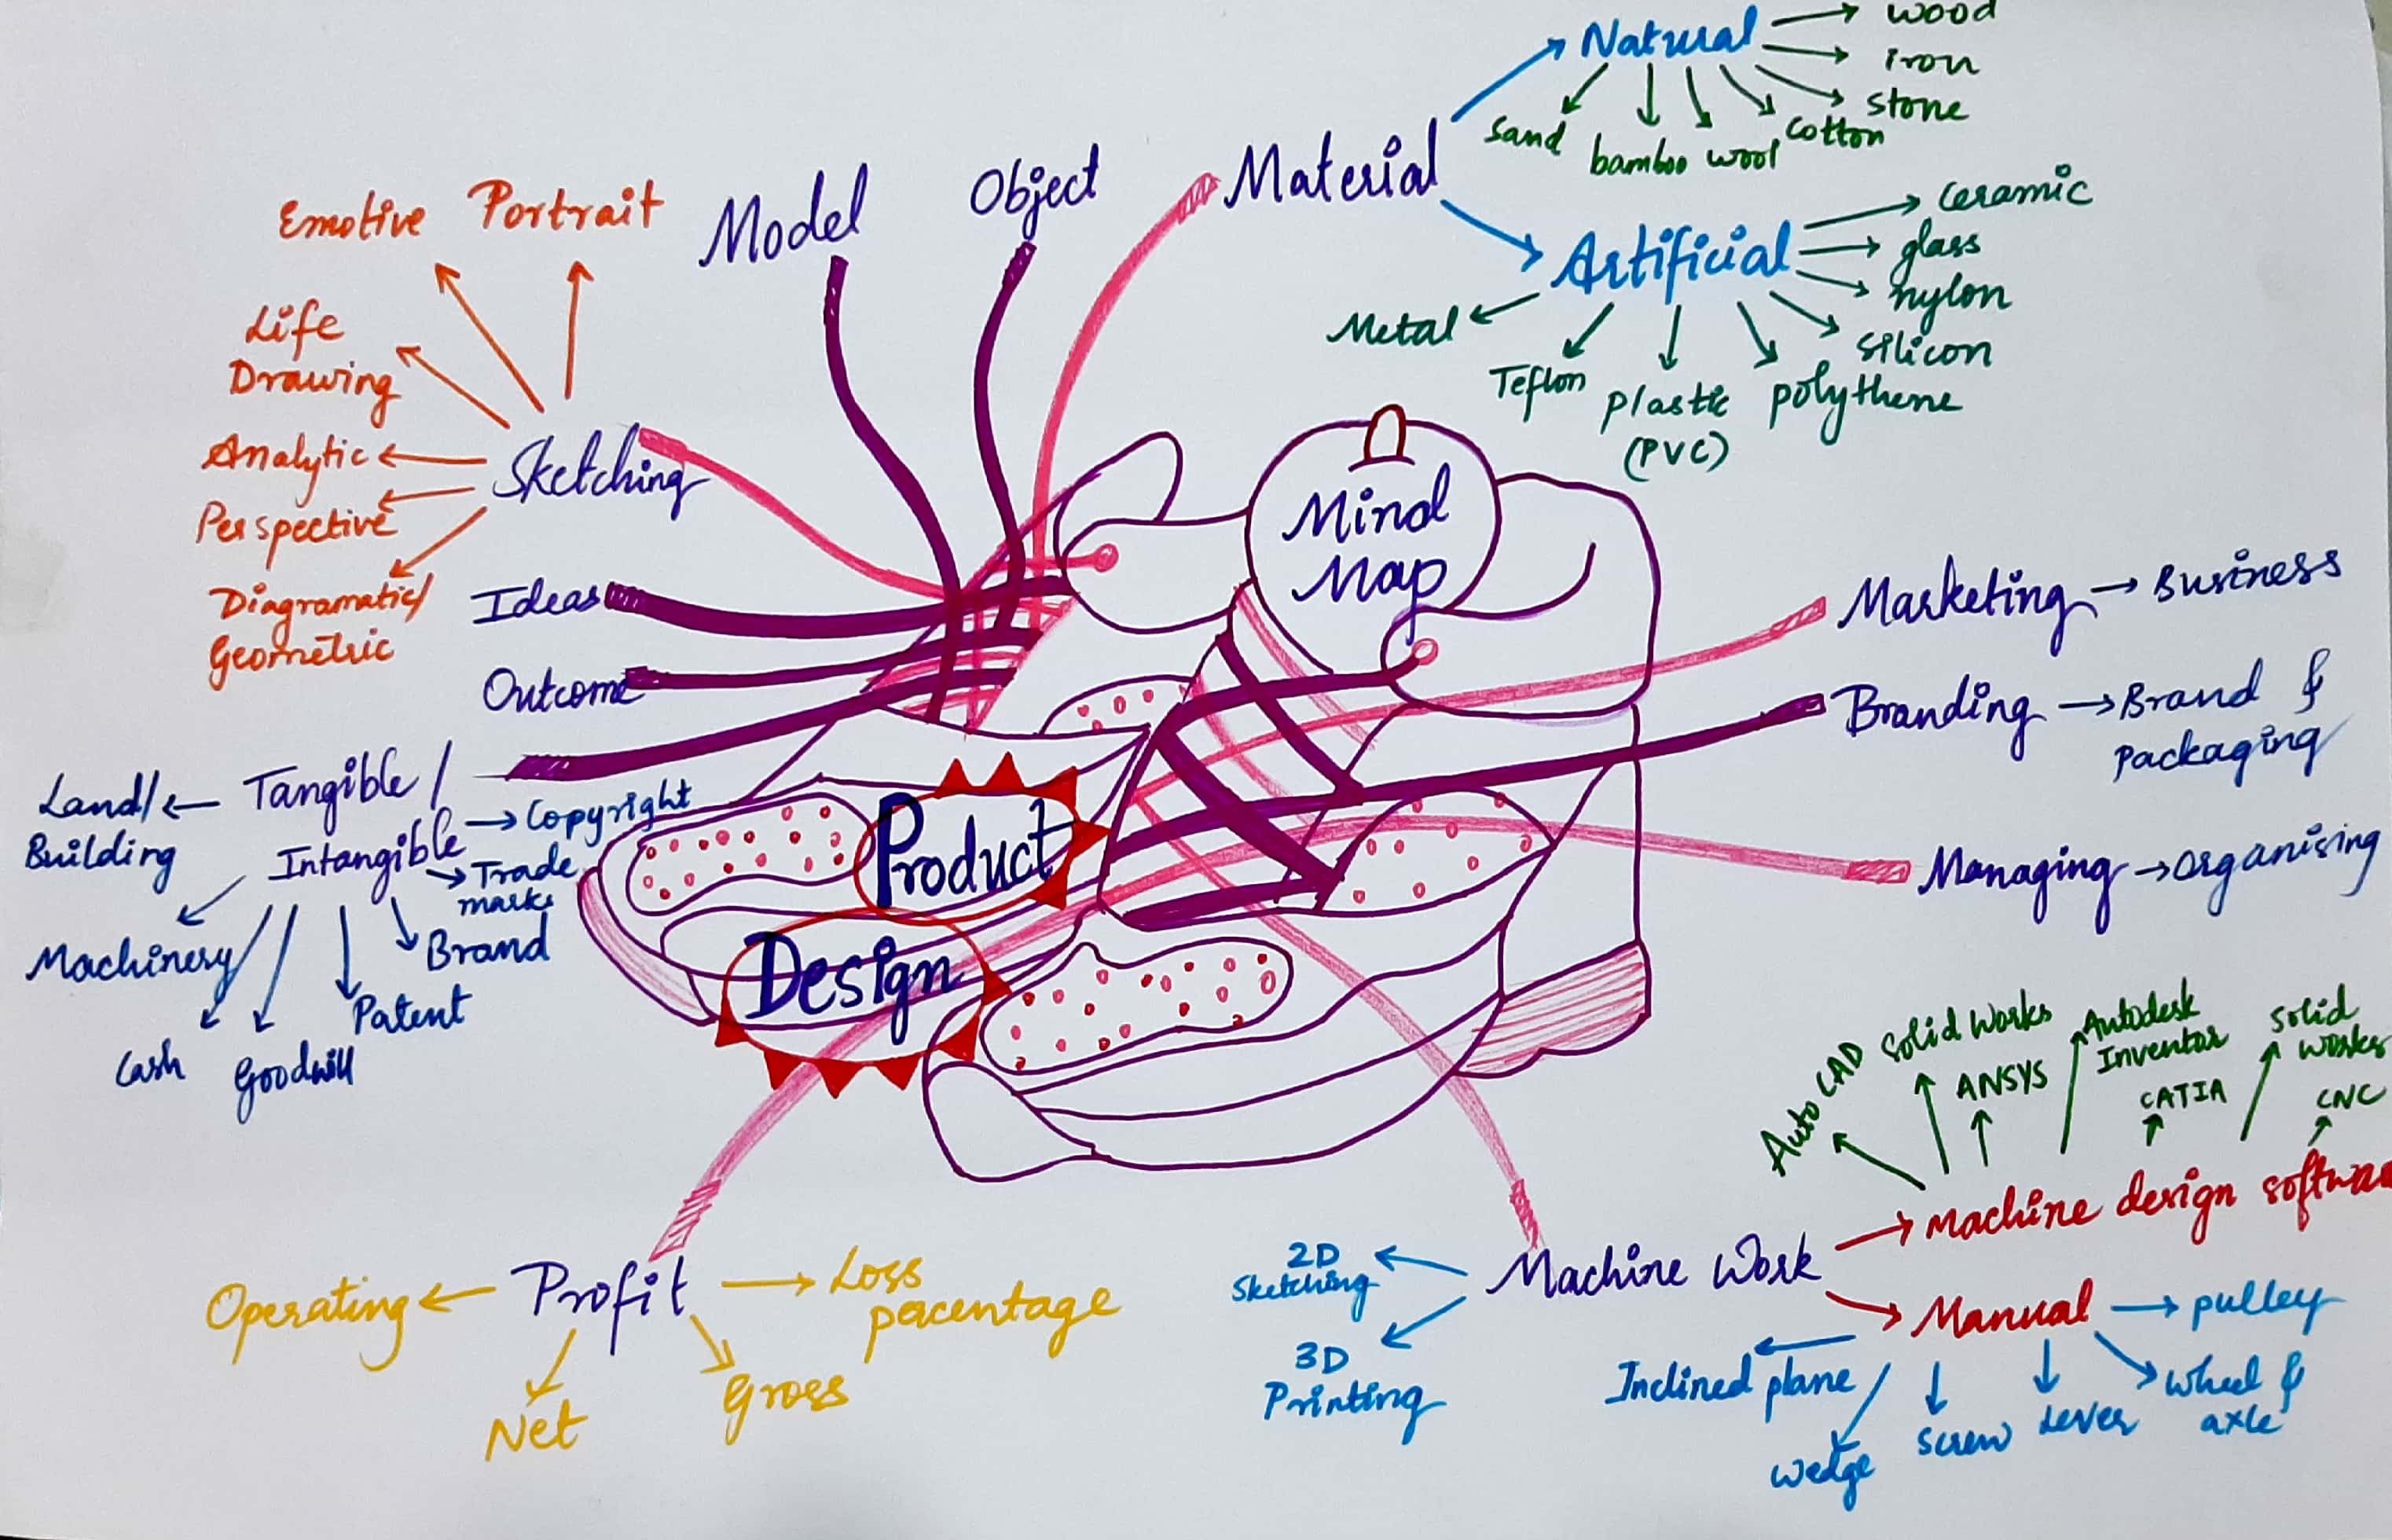 Natural
wood
iron
stone
cotton
wool
bamboo
sand
Material
Artificial
ceramic
glass
nylon
silicon
polythene
plastic
(PVC)
Teflon
Metal
Object
Model
Portrait
Emotive
Life
Drawing
Analytic
Perspective
Diagramatic/
Geometric
Sketching
Ideas
Outcome
Tangible /
Intangible
Land/
Building
Machinery
Cash
Goodwill
Patent
Brand
Trade
marks
Copyright
Mind
Map
Product
Design
Marketing
Business
Branding
Brand &
Packaging
Managing
Organising
Profit
Operating
Net
Gross
Loss
percentage
Machine Work
2D
Sketching
3D
Printing
Machine design software
Auto CAD
Solid Works
ANSYS
Autodesk
Inventor
CATIA
Solid
works
CNC
Manual
pulley
wheel &
axle
Lever
Screw
wedge
Inclined plane